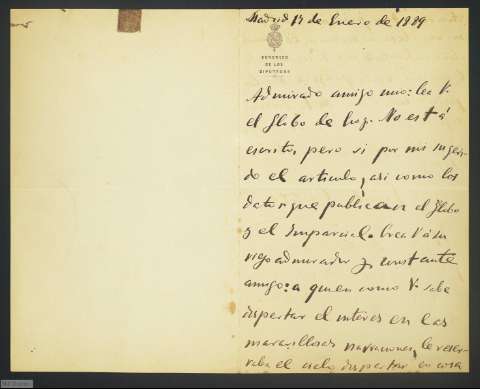 Madrid 17 de Enero de 1889
CONGRESO
DE LOS
DIPUTADOS
Admirado amigo mio: lea V.
el Globo de hoy. No está
escrito, pero si por mi sugeri-
do el articulo, asi como los
datos que publican el Globo
y el Imparcial. Crea V. á su
viejo admirador y constante
amigo: a quien como V. sabe
dispertar el interes en las
maravillosas narraciones, le reser-
vaba el cielo dispertar en cosa